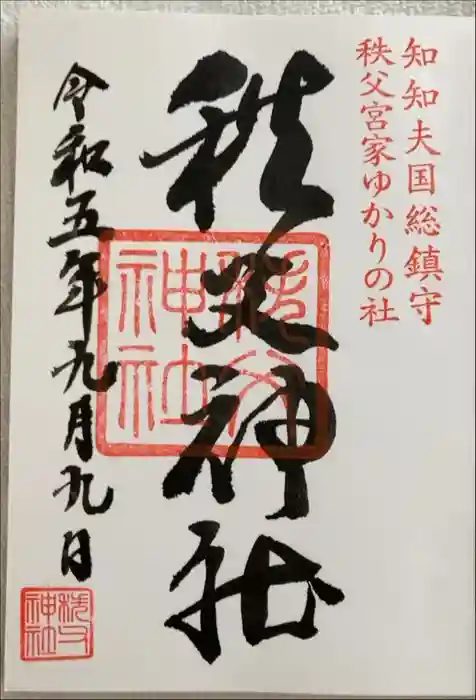 知知夫国総鎮守
秩父宮家ゆかりの社
秩父神社
秩父神社
令和五年九月九日
秩父神社